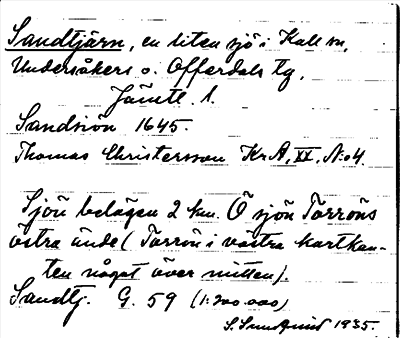 Sandtjärn, en liten sjö i Kall sn,
Undersåkers o. Offerdals tg,
Jämtl. l.
Sandsiön 1645.
Thomas Christersson Kr A, XX, N:o 4.
Sjön belägen 2 km. Ö sjön Torröns
östra ände (Torrön i västra kartkan-
ten något över mitten).
Sandtj. G. 59 (1:200.000)
S. Sundqvist 1935.